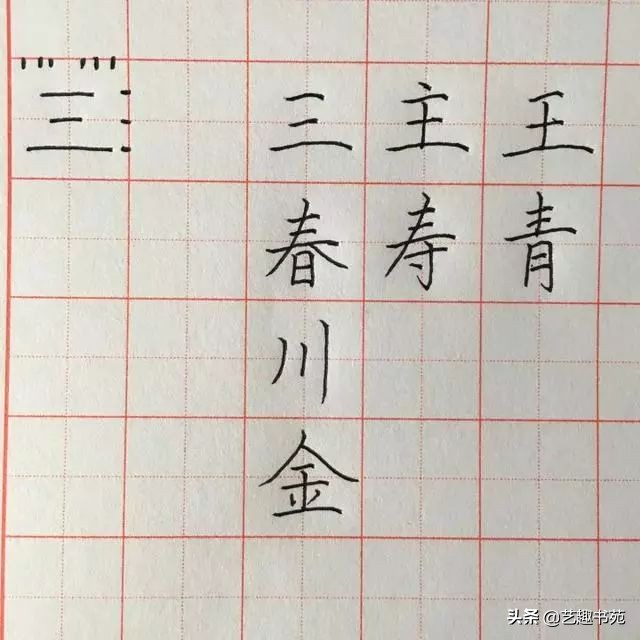 三 三 主 王
春 寿 青
川
金
头条 @艺趣书苑